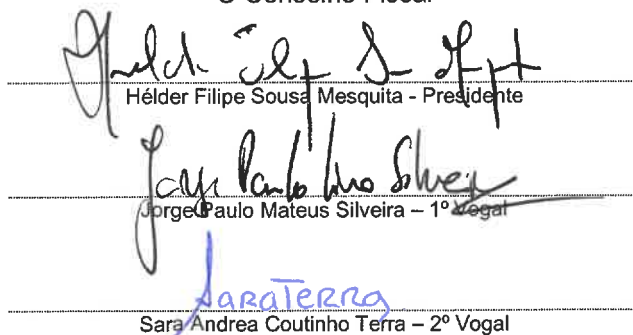 O Conselho Fiscal
Hélder Filipe Sousa Mesquita - Presidente
Jorge Paulo Mateus Silveira – 1º Vogal
Sara Terra
Sara Andrea Coutinho Terra – 2º Vogal